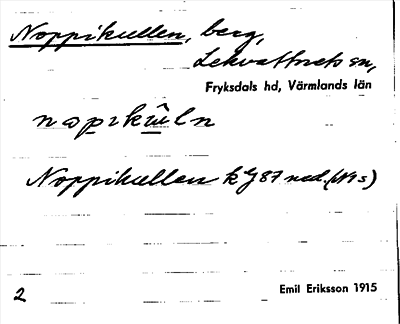 Noppikullen, berg,
Lekvattnets sn,
Fryksdals hd, Värmlands län
Noppikullen k J 87 ned.
2 Emil Eriksson 1915